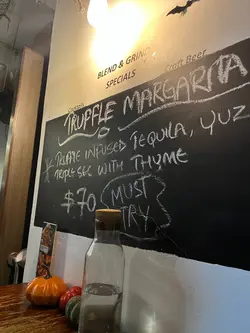 BLEND & GRIND
Craft Beer
SPECIALS
TRUFFLE MARGARITA
TRUFFLE INFUSED TEQUILA, YUZ
TRIPLE SEC WITH THYME
$70 MUST
TRY